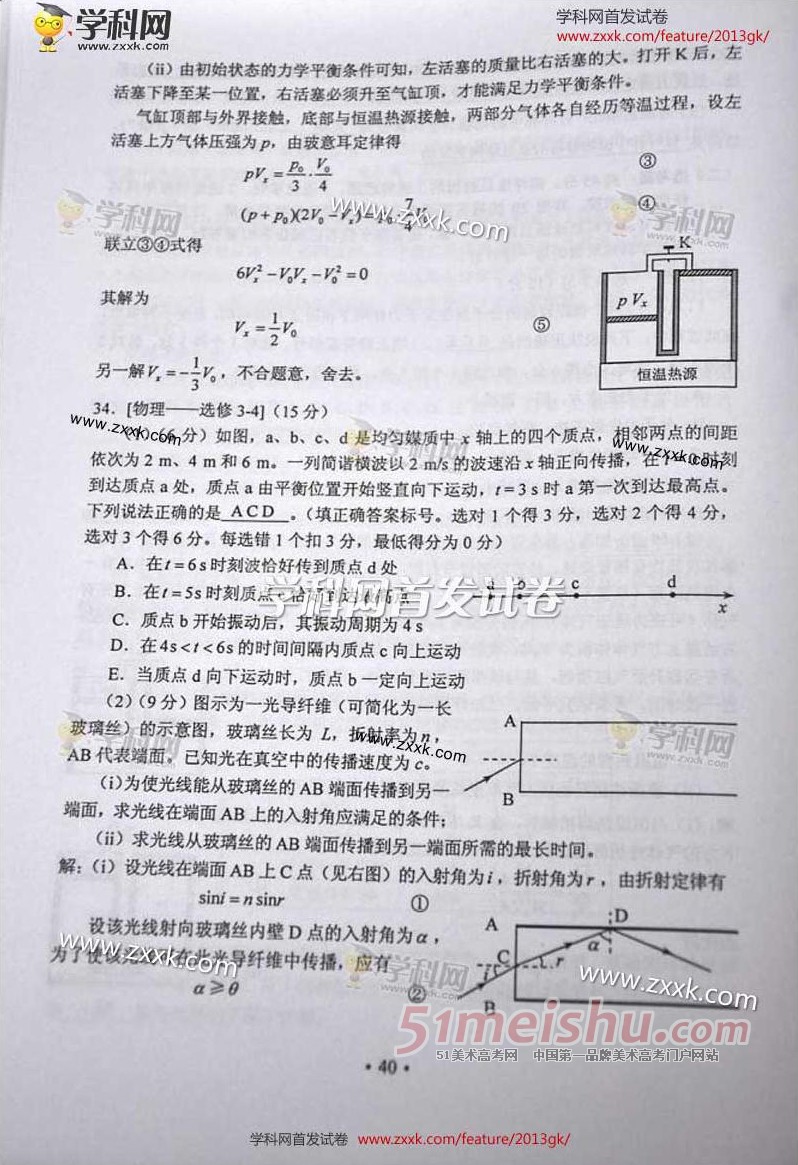 学科网
www.zxxk.com
学科网首发试卷
www.zxxk.com/feature/2013gk/
(ii)由初始状态的力学平衡条件可知，左活塞的质量比右活塞的大。打开 K 后，左
活塞下降至某一位置，右活塞必须升至气缸顶，才能满足力学平衡条件。
气缸顶部与外界接触，底部与恒温热源接触，两部分气体各自经历等温过程，设左
活塞上方气体压强为 p，由玻意耳定律得
pVₓ = p₀/3 · V₀/4 ③
(p+p₀)(2V₀−Vₓ) = 7/4 ④
联立③④式得
6Vₓ²−V₀Vₓ−V₀²=0
其解为
Vₓ = 1/2 V₀ ⑤
另一解 Vₓ = −1/3 V₀，不合题意，舍去。
K
p Vₓ
恒温热源
34．[物理——选修 3-4]（15 分）
（6 分）如图，a、b、c、d 是均匀媒质中 x 轴上的四个质点，相邻两点的间距
依次为 2 m、4 m 和 6 m。一列简谐横波以 2 m/s 的波速沿 x 轴正向传播，在 时刻
到达质点 a 处，质点 a 由平衡位置开始竖直向下运动，t=3 s 时 a 第一次到达最高点。
下列说法正确的是 A C D 。（填正确答案标号。选对 1 个得 3 分，选对 2 个得 4 分，
选对 3 个得 6 分。每选错 1 个扣 3 分，最低得分为 0 分）
A．在 t=6 s 时刻波恰好传到质点 d 处
B．在 t=5s 时刻质点
C．质点 b 开始振动后，其振动周期为 4 s
D．在 4 s<t<6s 的时间间隔内质点 c 向上运动
E．当质点 d 向下运动时，质点 b 一定向上运动
c d x
学科网首发试卷
（2）（9 分）图示为一光导纤维（可简化为一长
玻璃丝）的示意图，玻璃丝长为 L，折射率为 n，
AB 代表端面。已知光在真空中的传播速度为 c。
(i)为使光线能从玻璃丝的 AB 端面传播到另一
端面，求光线在端面 AB 上的入射角应满足的条件；
(ii) 求光线从玻璃丝的 AB 端面传播到另一端面所需的最长时间。
A
B
解：(i) 设光线在端面 AB 上 C 点（见右图）的入射角为 i，折射角为 r，由折射定律有
sini = n sinr ①
设该光线射向玻璃丝内壁 D 点的入射角为 α，
光导纤维中传播，应有
α ⩾ θ ②
A
D
α
C
i
r
B
www.zxxk.com
学科网
51meishu.com
51美术高考网 中国第一品牌美术高考门户网站
• 40 •
学科网首发试卷 www.zxxk.com/feature/2013gk/